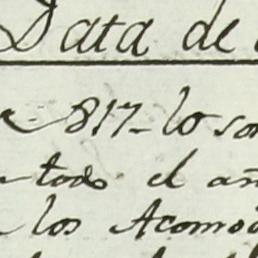 Data de
817- lo son
todo el añ
los Acomo